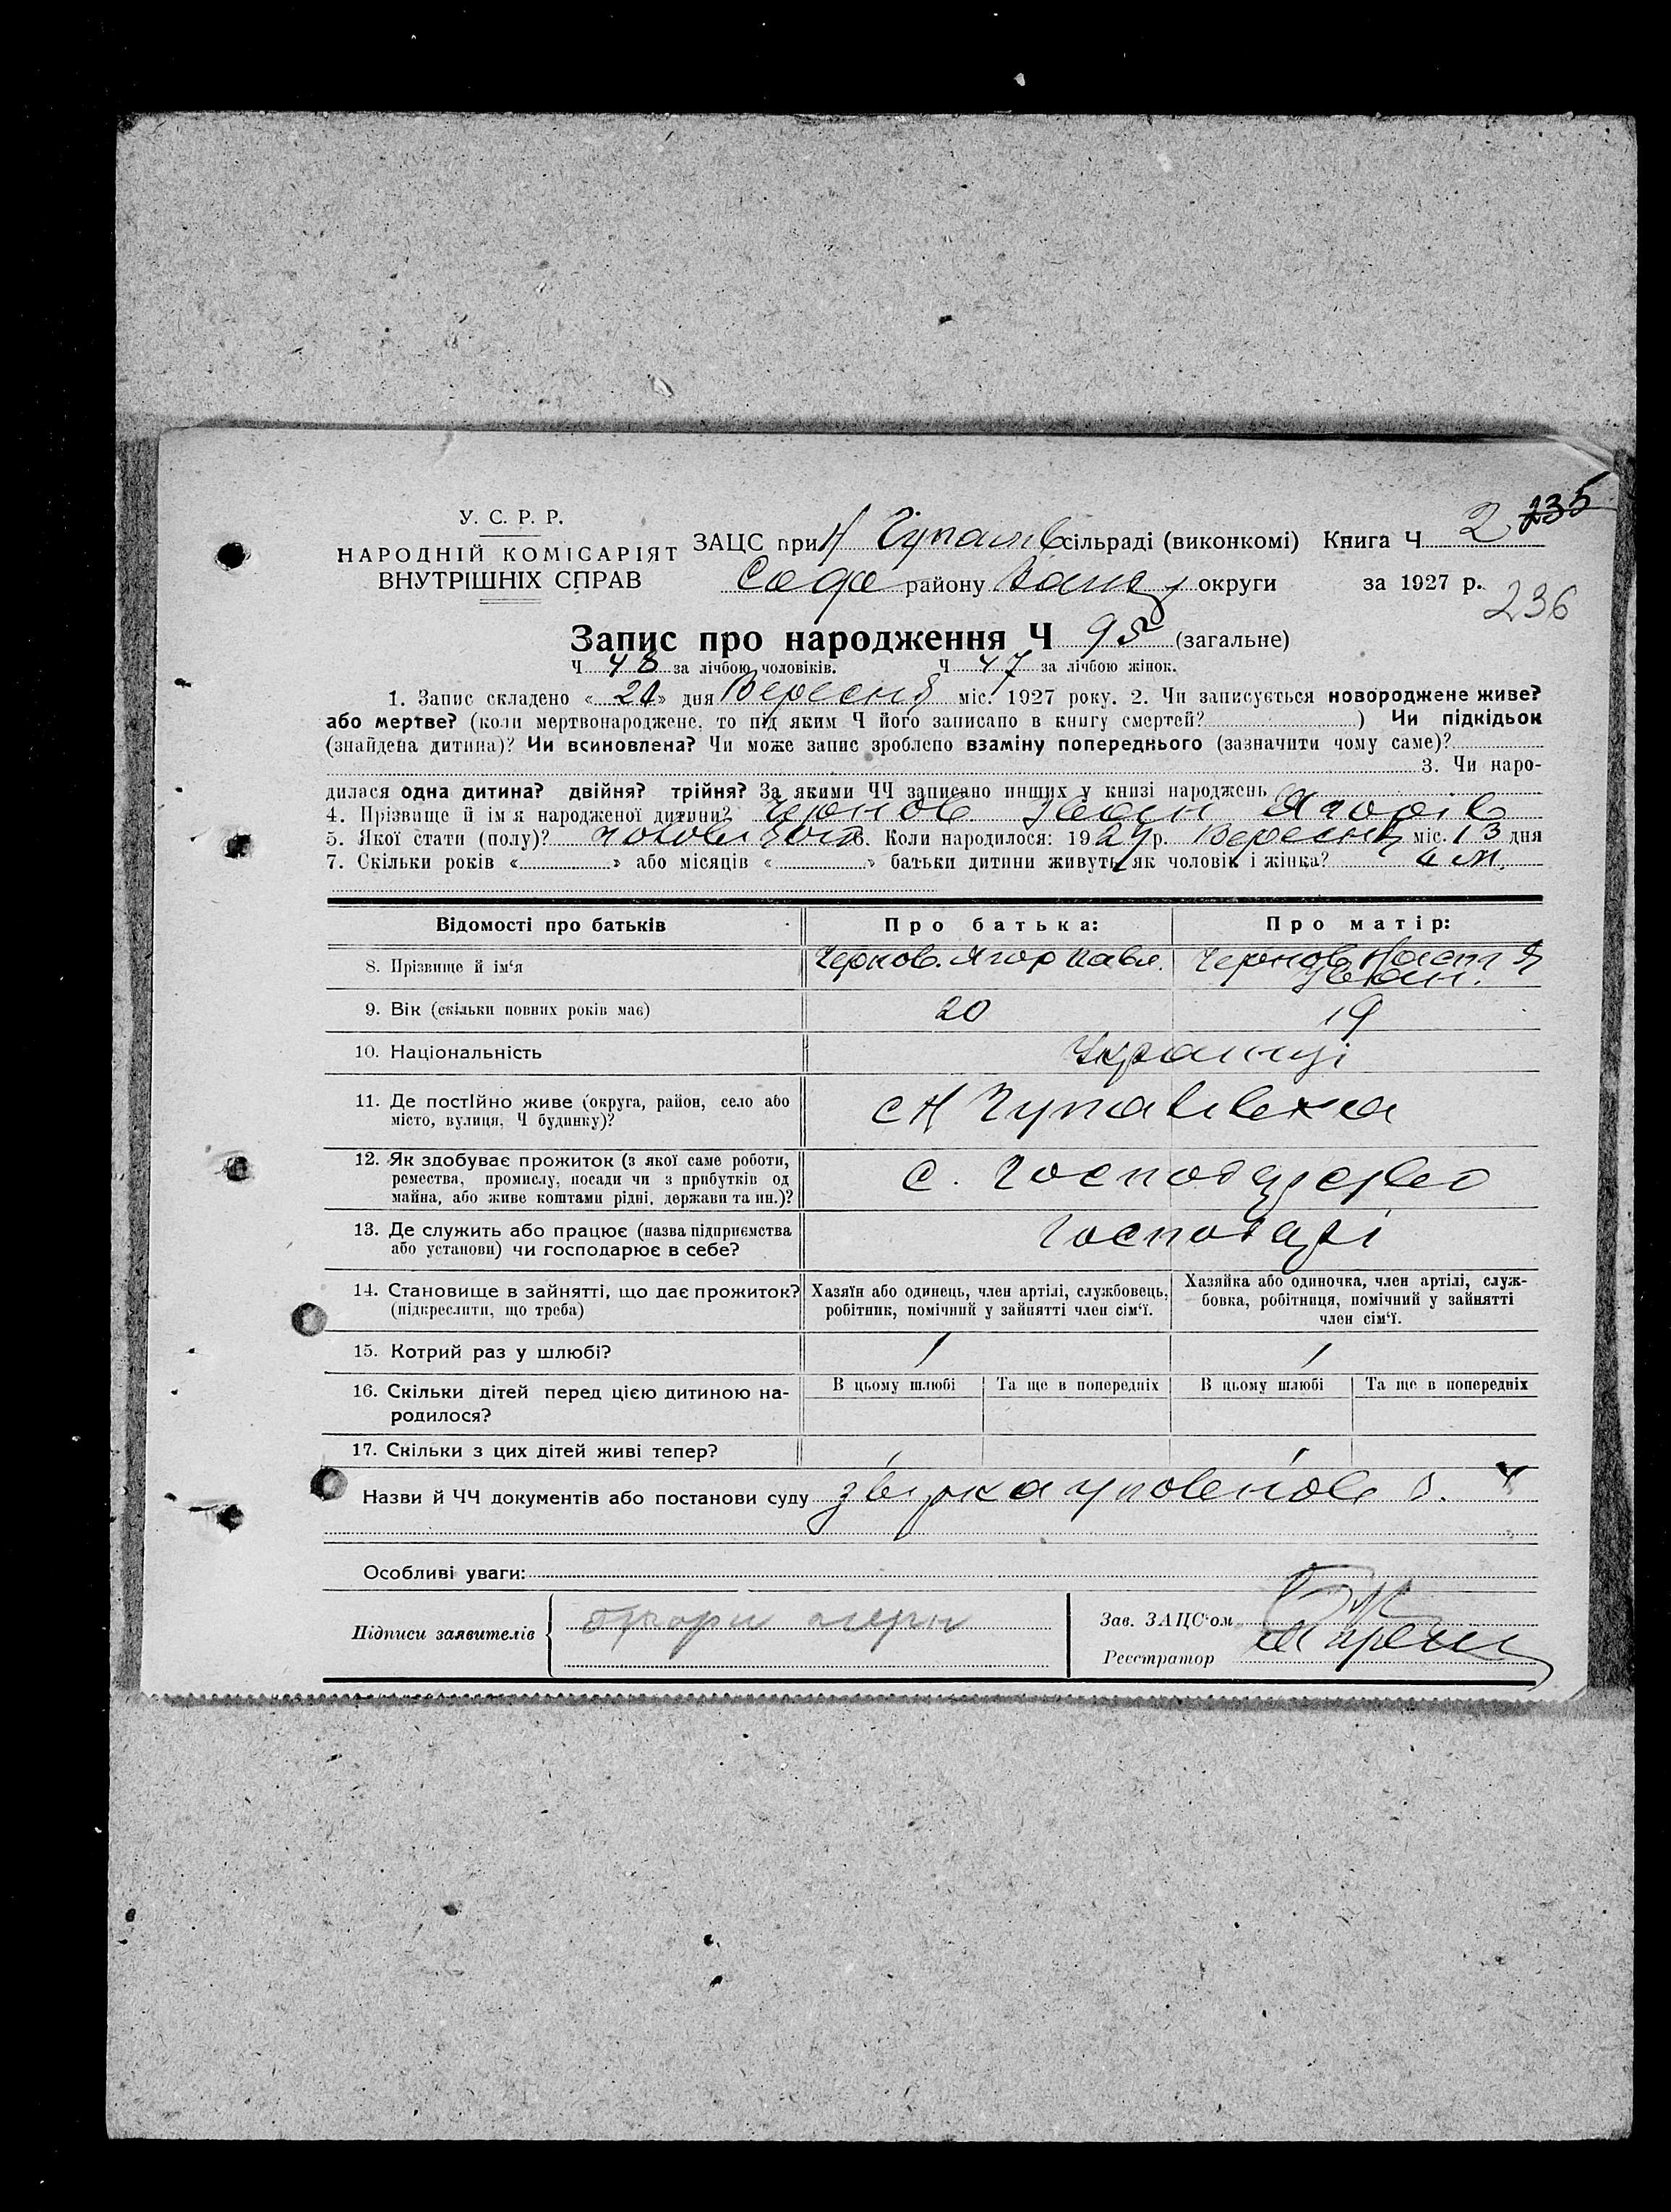 235
У. С. Р. Р.
НАРОДНІЙ КОМІСАРІЯТ
ВНУТРІШНІХ СПРАВ
ЗАЦС при Н Чупалів сільраді (виконкомі) Книга Ч 2
району округи за 1927 р.
236
Запис про народження Ч 95 (загальне)
Ч 48 за лічбою чоловіків. Ч 47 за лічбою жінок.
1. Запис складено « 20 » дня Вересня міс. 1927 року. 2. Чи записується новороджене живе?
або мертве? (коли мертвонароджене, то під яким Ч його записано в книгу смертей? ) Чи підкідьок
(знайдена дитина)? Чи всиновлена? Чи може запис зроблено взаміну попереднього (зазначити чому саме)?
3. Чи наро-
дилася одна дитина? двійня? трійня? За якими ЧЧ записано инших у книзі народжень
4. Прізвище й ім'я народженої дитини? Чернов Іван Ягорів
5. Якої стати (полу)? 6. Коли народилося: 1927 р. Вересня міс. 13 дня
7. Скільки років « » або місяців « » батьки дитини живуть як чоловік і жінка?
Відомості про батьків Про батька: Про матір:
8. Прізвище й ім'я Чернов. Ягор Павл. Чернов Наст Я
Іван.
9. Вік (скільки повних років має) 20 19
10. Національність Українці
11. Де постійно живе (округа, район, село або
місто, вулиця, Ч будинку)? с Н Чупалівка
12. Як здобуває прожиток (з якої саме роботи,
ремества, промислу, посади чи з прибутків од
майна, або живе коштами рідні, держави та ин.)? С. Господарство
13. Де служить або працює (назва підприємства
або установи) чи господарює в себе? Господарі
14. Становище в зайнятті, що дає прожиток?
(підкреслити, що треба)
Хазяїн або одинець, член артілі, службовець,
робітник, помічний у зайнятті член сім'ї.
Хазяйка або одиночка, член артілі, служ-
бовка, робітниця, помічний у зайнятті
член сім'ї.
15. Котрий раз у шлюбі? 1 1
16. Скільки дітей перед цією дитиною на-
родилося?
В цьому шлюбі Та ще в попередніх В цьому шлюбі Та ще в попередніх
17. Скільки з цих дітей живі тепер?
Назви й ЧЧ документів або постанови суду
Особливі уваги:
Підписи заявителів
Зав. ЗАЦС'ом
Реєстратор